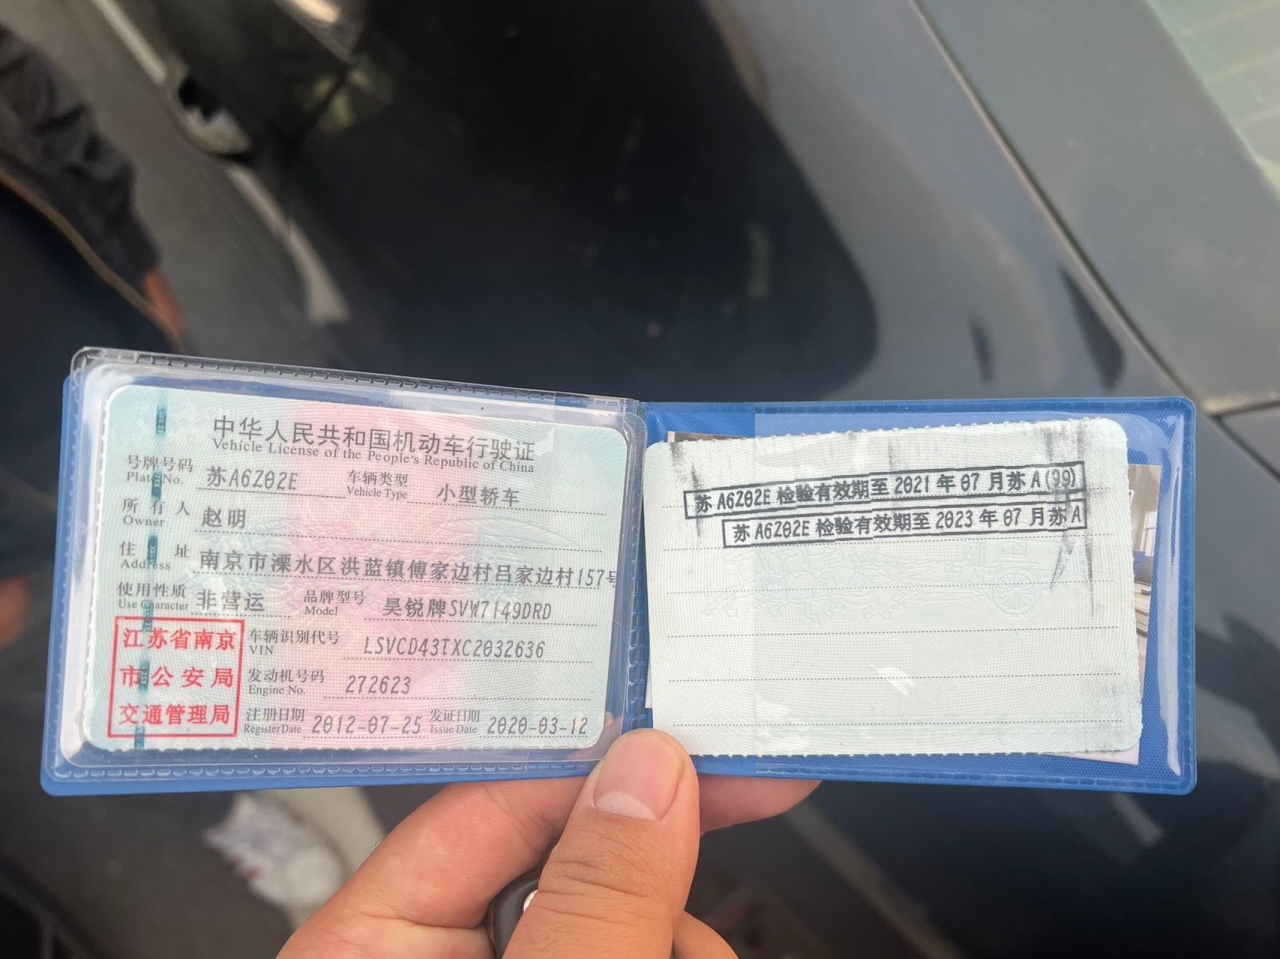 中华人民共和国机动车行驶证
Vehicle License of the People's Republic of China
号牌号码 苏A6Z02E 车辆类型 小型轿车
Plate No. Vehicle Type
所有人 赵明
Owner
住址 南京市溧水区洪蓝镇傅家边村吕家边村157号
Address
使用性质 非营运 品牌型号 昊锐牌SVW7149DRD
Use Character Model
江苏省南京 车辆识别代号 LSVCD43TXC2032636
VIN
市公安局 发动机号码 272623
Engine No.
交通管理局 注册日期 2012-07-25 发证日期 2020-03-12
Register Date Issue Date
苏A6Z02E 检验有效期至 2021年07月苏A(99)
苏A6Z02E 检验有效期至 2023年07月苏A